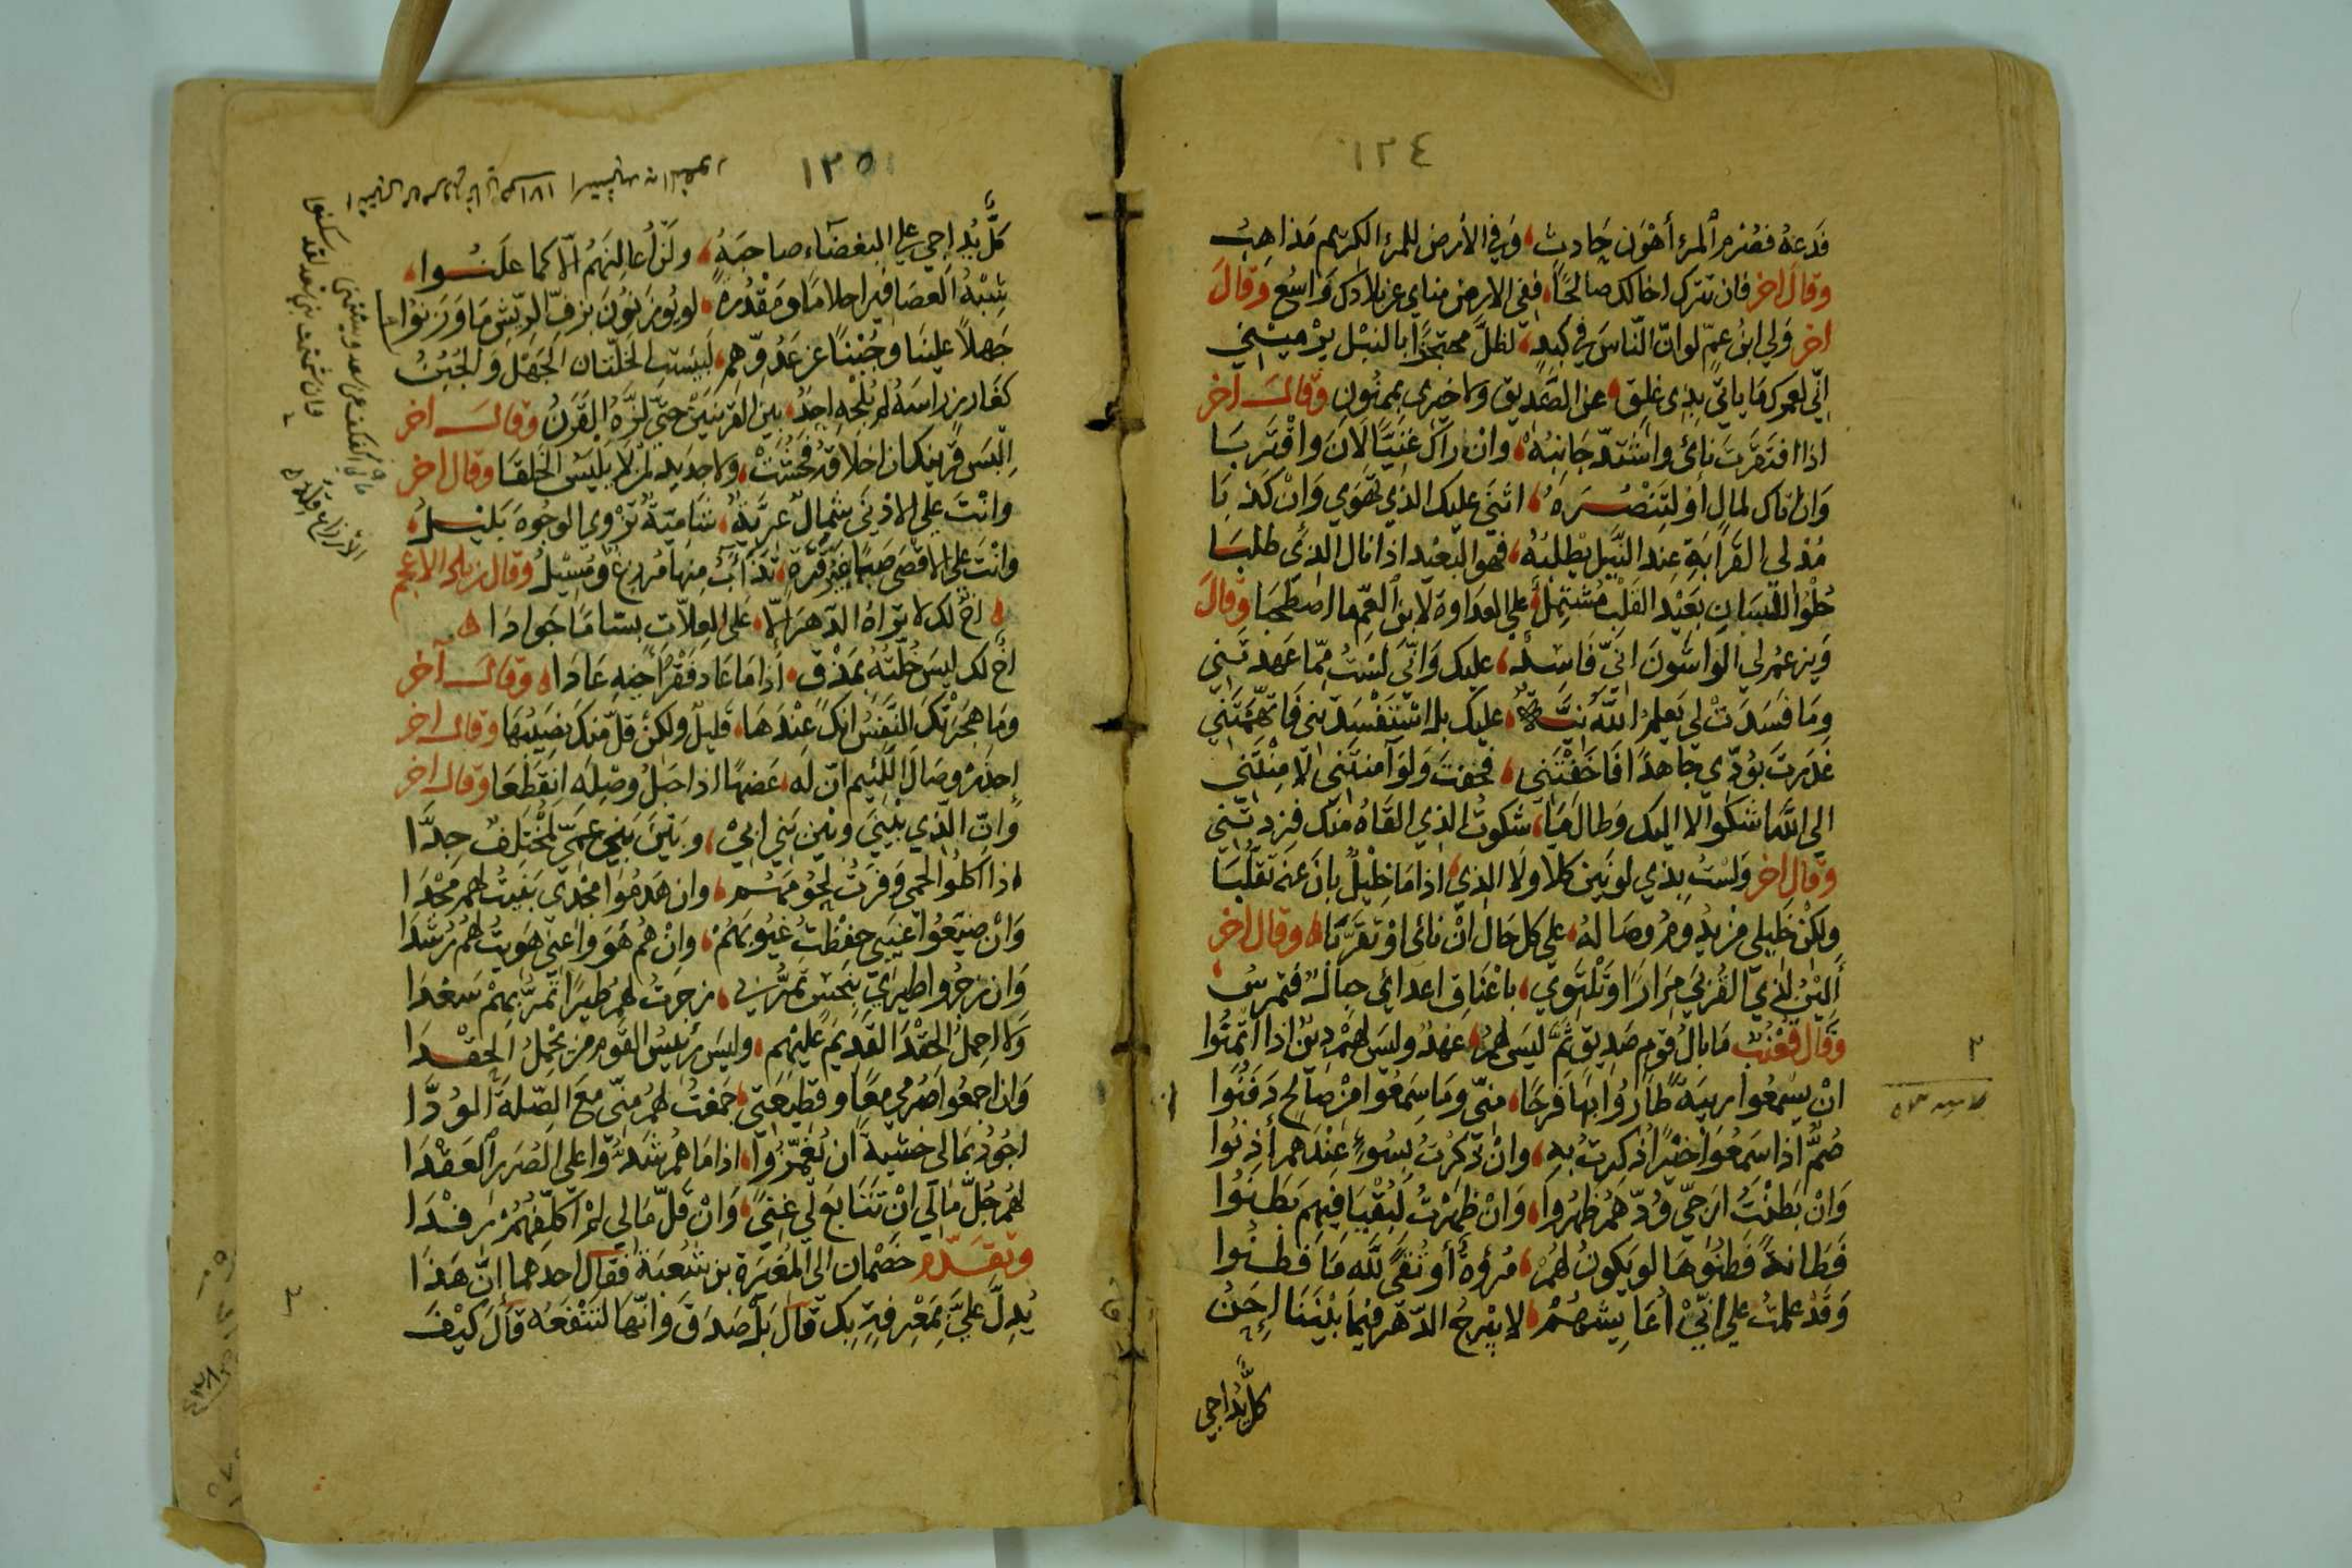 ١٢٤
فَدعهُ فصُرم المرء أهْوَن حَادثٍ، وَفي الأرض للمرء الكريم مَذاهِبُ
وقال اخر فان تترك اخا لك صالحًا، ففي الارض مناي عن بلادك وَاسُع وقالَ
اخر وَلي ابنُ عمٍّ لو انّ النّاسَ في كبَدٍ، لظلَّ محتجزًا بالنبْل يرْميْني
انّي لعمرك مَا بابي بذِى غلق، عن الصَّديق ولا خيرى بممنُونِ وقال اخر
اذا افتقرتَ نائى واشتدّ جَانبُهُ، وانْ رآكَ غَنِيًّا لَانَ واقْتَربَا
وَان اتاك لمالٍ أوْ لِتَنْصُرَهُ، اثنَى عليك الذي تَهْوَي وَانْ كَذبَا
مُدْلي القَرابَةِ عند النَّيل يطْلبُهُ، فهو البَعيْد اذا نال الذي طلبَا
حُلْوا اللسَانِ بعَيْد القَلْب مُشْتمِلٌ، على العداوة لابن العمّ ما اصطحبَا وقالَ
وَيزعمُ لي الوَاشُونَ انّي فَاسِدٌ، عليك وَانّي لسْتُ ممّا عَهدتَني
ومَا فسَدَتْ لي يَعلمُ اللّهُ نيَّةٌ، عليك بل استَفْسَدتني فاتَّهمْتَني
غدَرتَ بوُدّي جاهدًا فَاخَفْتَني، فخفتَ وَلَوْ آمَنتَني لَأمِنْتَني
الى اللّه اشكوا لا اليك وَطال مَا، شكوتُ الذي القَاهُ منك فزدتَني
وقال اخر وَلسْتُ بذي لونَين كلا ولَا الذي، اذا مَا خليْلٌ بانَ عنهُ تقلّبَا
ولكنْ خَليلى مَن يدُومُ وصَالهُ، على كل حال انْ نائى اوْ تقرّبَا وقال اخر
أليْنُ لذي القُربَي مِرَارًا وَتَلْتوي، باعْنَاقِ اعدائي حِبالٌ فتمرسُ
وقَال قعْنَب مَا بالُ قوم صَديق ثمَّ ليسَ لهُمُ، عهدٌ وليسَ لهمْ دِيْنٌ اذا ائتمنُوا
انْ يسْمعُوا ريبَةً طارُوا بهَا فرحًا، منّي ومَا سَمعُوا منْ صالح دَفنُوا
صُمٌّ اذا سَمعُوا خيْرًا ذكرتُ به، وانْ ذكرتُ بسُوءٍ عندَهم أذِنُوا
وَانْ بَطنْتُ ارَجّي وُدّهُمْ ظهَرُوا، وَانْ ظهَرْتُ لبُقْيَا فيهم بَطنُوا
فَطَانةً فَطنُوهَا لو يَكونُ لهُمْ، مُرُوّةٌ أو تُقًي للّه مَا فَطنُوا
وَقدْ علمتُ على انّيْ أعَايشهُمْ، لا يبْرحُ الدّهر فيْمَا بيْنَنَا إحَنُ
كلٌّ يُداجي
٣
١٣٥
كلٌّ يُداجي على البغضَاء صاحبَهُ، ولَنْ أعالنَهُم الّا كما علَنُوا
شِبْهُ العَصَافير احلامًا ومَقْدُرةً، لو يُوزَنُونَ بزفّ الرّيش مَا وَزنُوا
جَهلاً علينَا وجُبْنًا عن عَدُوّهم، لبئسَتِ الخلّتان الجَهْل وَالجُبُنُ
كغَارزٍ رأسَهُ لم يُلجْهِ احَدٌ، بين القرينَيْن حتّي لزَّهُ القَرَنُ وقال اخر
اِلبَس قرينكَ ان اخلاقهُ خُبُثَتْ، ولا جديدَ لمَن لا يلْبَس الخَلقَا وقال اخر
وانْتَ على الادْني شمالٌ عريَّةٌ، شَاميّةٌ تَزْوي الوجُوهَ بَليْلُ
وانْتَ على الاقصَى صَبًا غيرُ قَرّةٍ، تذَاءَبَ منهَا مُرزغٌ ومُسِيْلُ وقال زياد الاعجم
اخٌ لك لا تراهُ الدّهرَ الّا، على العِلّاتِ بسّامًا جَوادَا
اخٌ لك ليسَ خُلَّتُهُ بمَذْقٍ، اذا مَا عَاد فَقْرُ اخيه عَادَا وقال آخر
ومَا هجَرَتْكَ النَّفْسُ انّكَ عنْدهَا، قليْلٌ ولكنْ قلّ منكَ نصيبُهَا وقال اخر
احذرْ وصَالَ اللّئيم انّ لَه، عَضهًا اذا حَبْلُ وصْلِه انقَطَعَا وقال اخر
وَانّ الّذي بيْني وبَيْن بَني ابيْ، وبَيْنَ بَني عَمّي لمُخْتَلِفٌ جِدَّا
اذا اكلُوا لحمي وَفرتُ لحُومَهُمْ، وان هَدمُوا مجْدى بَنيتُ لهم مَجْدَا
وَانْ ضيَّعُوا غَيْبي حفِظْتُ غيُوبَهُمْ، وانْ همُ هَوَوا غَيّي هَويتُ لهُمْ رُشْدَا
وَان زجَرُوا طيرًا بنَحْسٍ تمرُّ بي، زجرتُ لهم طيرًا تمرُّ بهمْ سَعْدَا
وَلا احملُ الحقْدَ القديمَ عليهم، وليسَ رئيسُ القَوم من يحْملُ الحقْدَا
وَان اجمعُوا صُرمي معًا وقطيعَتي، جمعتُ لهُمْ منّي معَ الصّلَة الوُدَّا
اجُودُ بمَالى خشيةً ان تُغمّرُوا، اذا مَا همُ شَدُّوا على الصُّرر العَقْدَا
لهُمْ جُلّ مَالي انْ تَتَابع لي غِنىً، وَانْ قَلّ مَالي لمْ اكلّفْهُمُ رِفْدَا
وتقدّم خَصْمان الى المُغيرة بن شُعبَة فقال احدهما انّ هَذا
يُدِلّ عليَّ بمَعْرفةٍ بك قالَ بَلْ صَدقَ وَانّهَا لتَنْفعُه قالَ كيْفَ